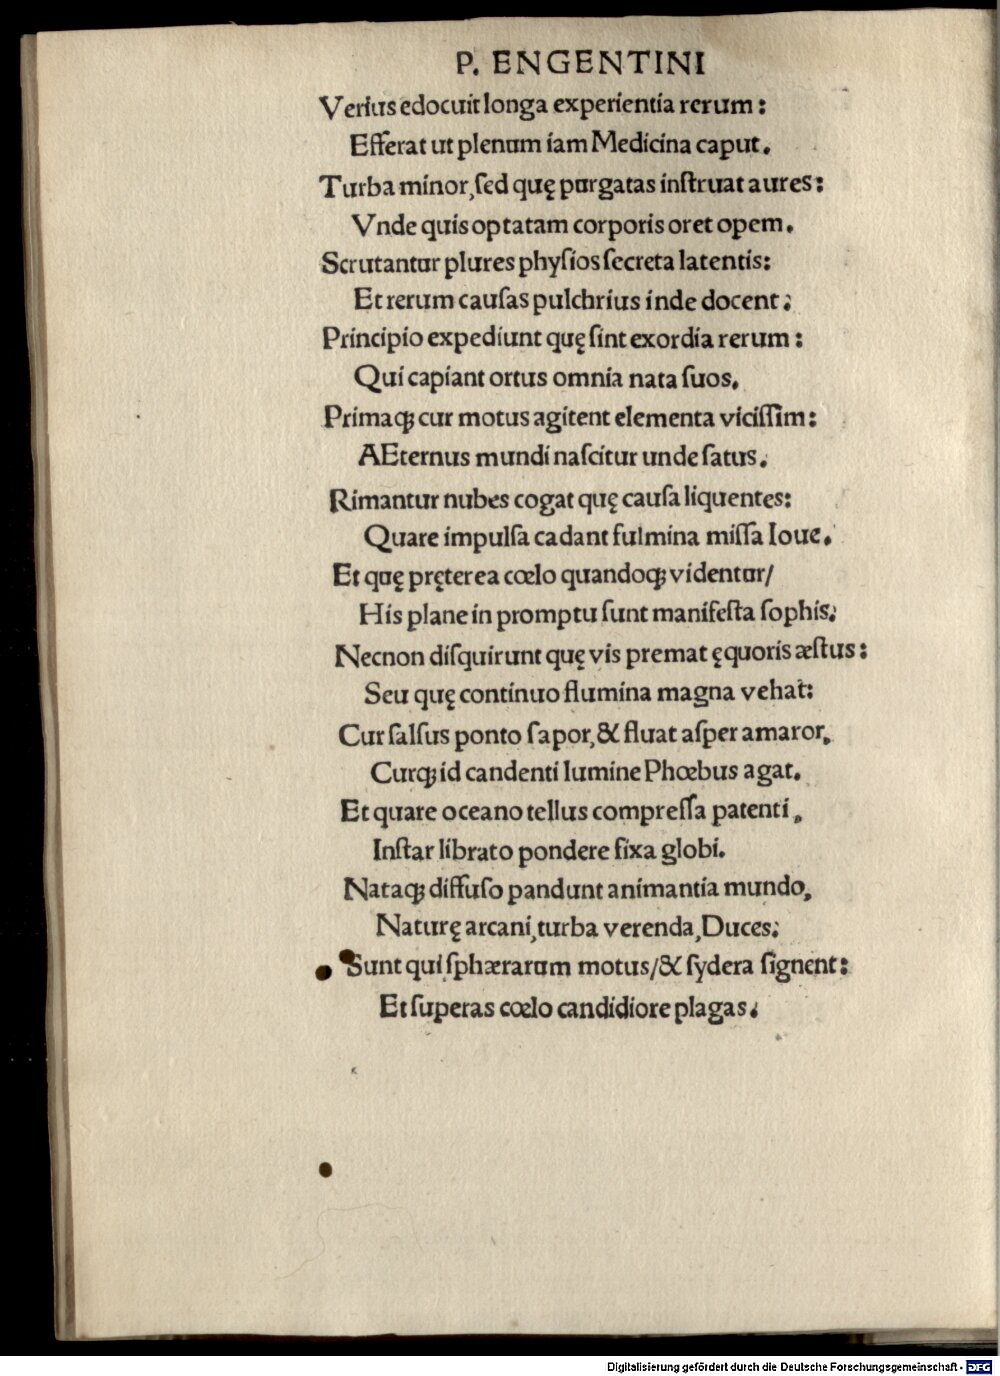 P. ENGENTINI
Verius edocuit longa experientia rerum:
Efferat ut plenum iam Medicina caput.
Turba minor, ſed quę purgatas inſtruat aures:
Vnde quis optatam corporis oret opem.
Scrutantur plures phyſios ſecreta latentis:
Et rerum cauſas pulchrius inde docent;
Principio expediunt quę ſint exordia rerum:
Qui capiant ortus omnia nata ſuos.
Primaqꝫ cur motus agitent elementa viciſſim:
AEternus mundi naſcitur unde ſatus.
Rimantur nubes cogat quę cauſa liquentes:
Quare impulſa cadant fulmina miſſa Ioue.
Et quę pręterea cœlo quandoqꝫ videntur/
His plane in promptu ſunt manifeſta ſophis;
Necnon diſquirunt quę vis premat ęquoris æſtus:
Seu quę continuo flumina magna vehat:
Cur ſalſus ponto ſapor, & fluat aſper amaror.
Curqꝫ id candenti lumine Phœbus agat.
Et quare oceano tellus compreſſa patenti.
Inſtar librato pondere fixa globi.
Nataqꝫ diffuſo pandunt animantia mundo,
Naturę arcani, turba verenda, Duces;
Sunt qui ſphærarum motus/& ſydera ſignent:
Et ſuperas cœlo candidiore plagas;
Digitalisierung gefördert durch die Deutsche Forschungsgemeinschaft - DFG